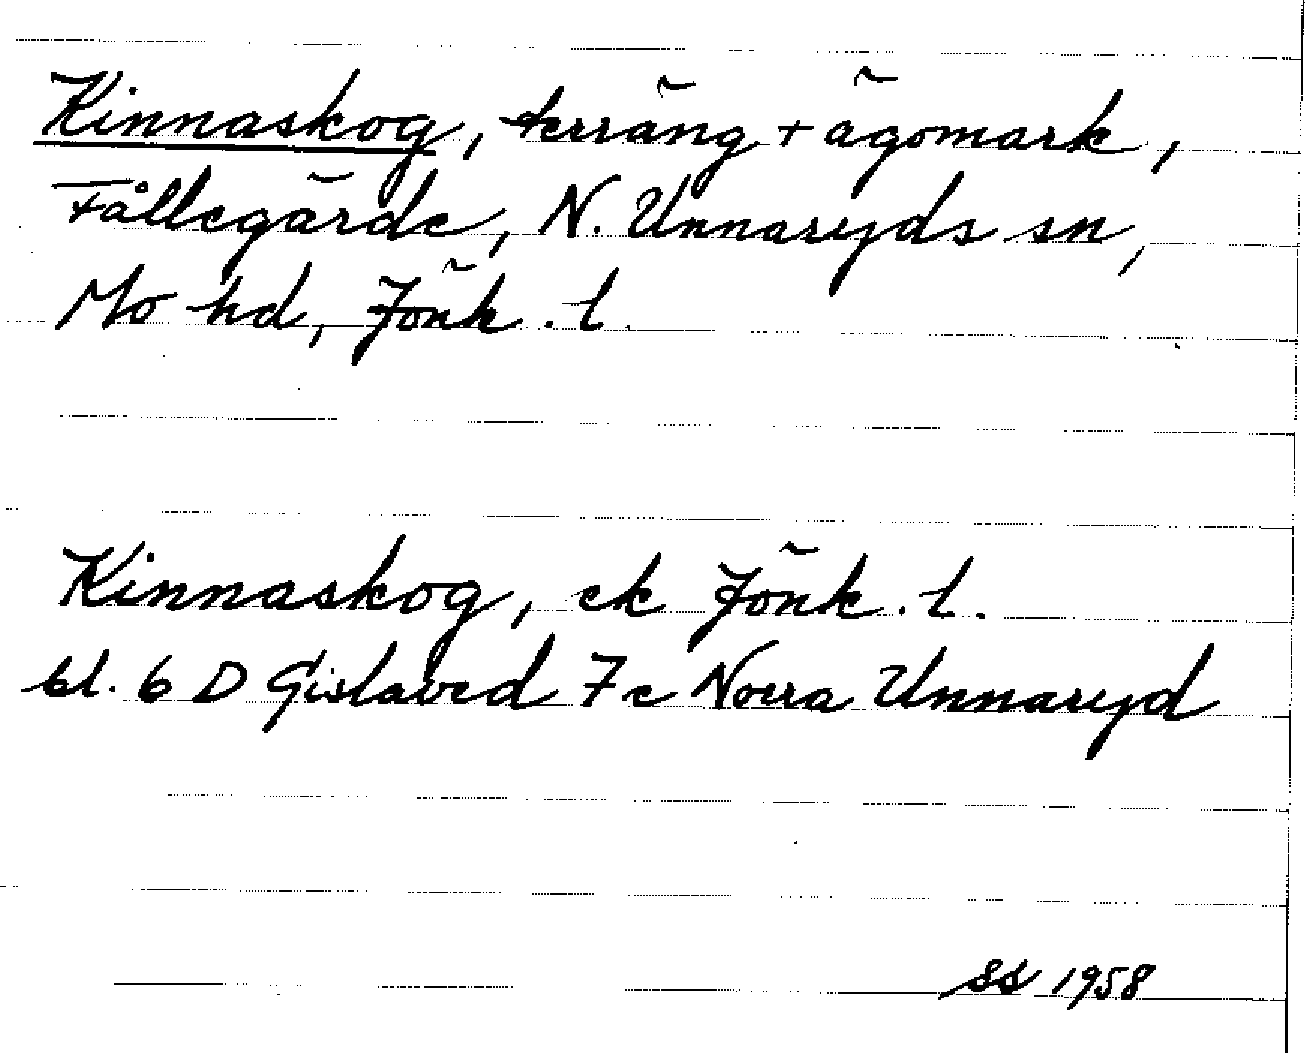 Kinnaskog, terräng + ägomark,
Fållegärde, N. Unnaryds sn,
Mo hd, Jönk. l.
Kinnaskog, ek Jönk. l.
bl. 6 D Gislaved 7 c Norra Unnaryd
SS 1958